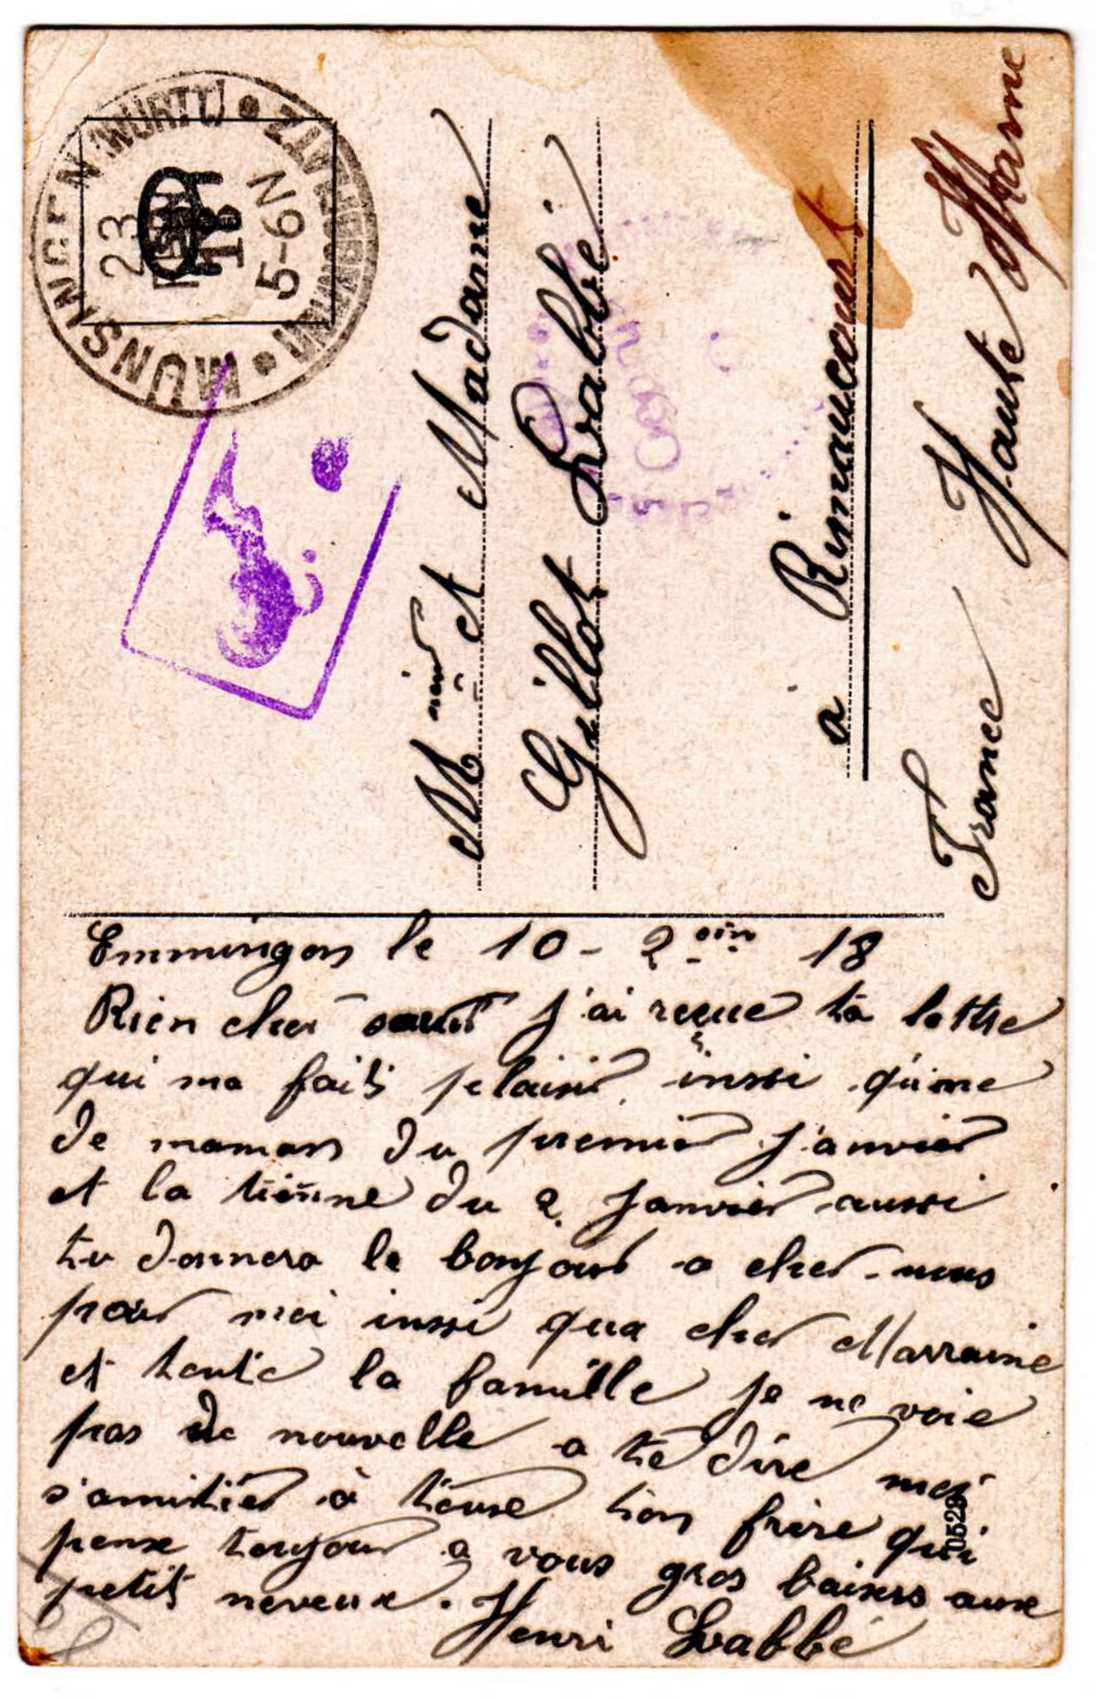 MÜNSINGEN (WÜRTT)
23
18
5-6N
Msieur et Madame
Gillot Labbé
à Rimaucourt
Haute Marne
France
Emmingen le 10 - 2 18
Bien cher j'ai reçue ta lettre
qui ma fait plaisir inssi qu'une
de maman du premier janvier
et la tienne du 2 Janvier aussi
tu donnera le bonjour a cher nous
pour moi inssi qua cher Marraine
et toute la famille je ne voie
pas de nouvelle a te dire mes
s'amitier à touse ton frère qui
pense toujour a vous gros baisers aux
petit neveux. Henri Labbé
0528